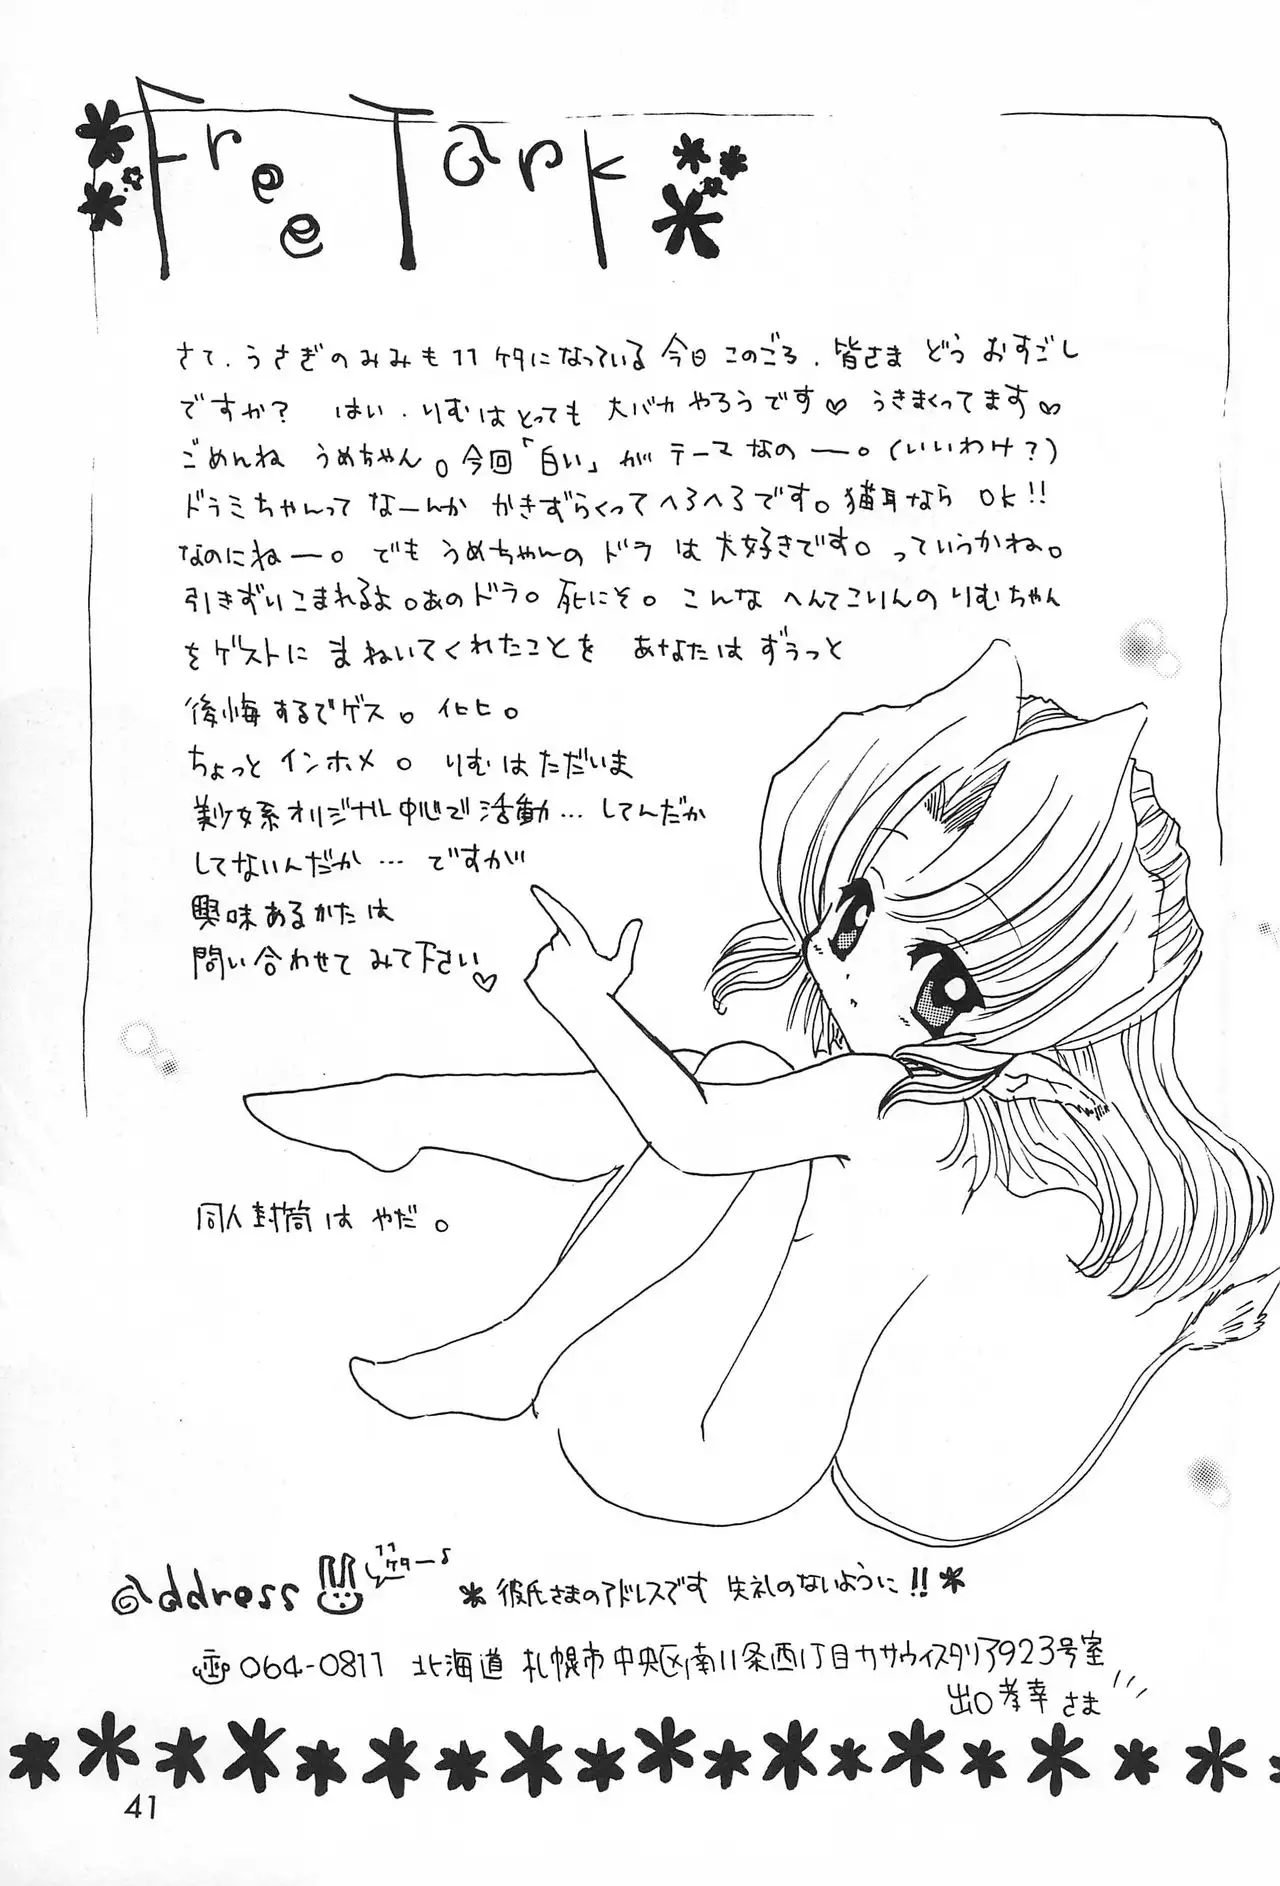 Free Tark
さて、うさぎのみみも11ケタになっている今日このごろ、皆さま どう おすごし
ですか? はい、りむはとっても 大バカやろうです♡ うきまくってます♡
ごめんね うめちゃん。今回「白い」が テーマ なのー。(いいわけ?)
ドラミちゃんって なーんか かきずらくって へろへろです。猫耳なら OK!!
なのにねー。でも うめちゃんの ドラ は 大好きです。っていうかね。
引きずりこまれるよ。あのドラ。死にそ。こんな へんてこりんの りむちゃん
をゲストに まねいてくれたことを あなたは ずぅっと
後悔するでゲス。イヒヒ。
ちょっと インホメ。 りむは ただいま
美少女系オリジナル中心で活動…してんだか
してないんだか…ですが
興味あるかたは
問い合わせて みて下さい♡
同人封筒は やだ。
@ddress 11ケター♪ *彼氏さまのアドレスです 失礼のないように!!*
〒064-0811 北海道 札幌市中央区南11条西1丁目カサウィスタリア923号室
出口孝幸さま
41